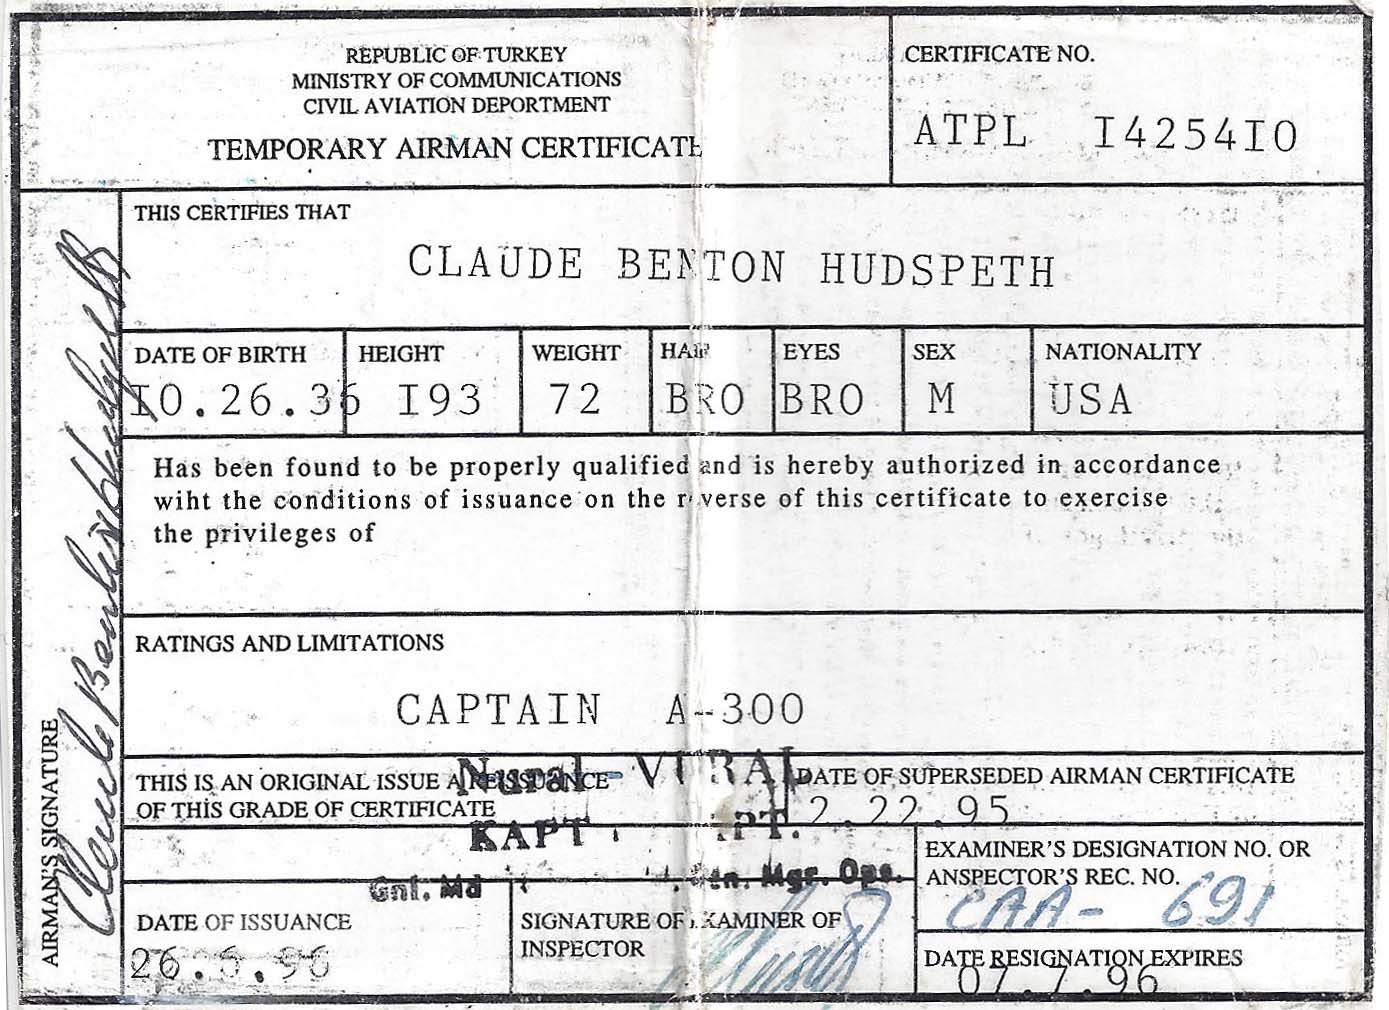 REPUBLIC OF TURKEY
MINISTRY OF COMMUNICATIONS
CIVIL AVIATION DEPORTMENT
TEMPORARY AIRMAN CERTIFICATE
CERTIFICATE NO.
ATPL I4254IO
THIS CERTIFIES THAT
CLAUDE BENTON HUDSPETH
DATE OF BIRTH HEIGHT WEIGHT HAIR EYES SEX NATIONALITY
IO.26.36 I93 72 BRO BRO M USA
Has been found to be properly qualified and is hereby authorized in accordance
wiht the conditions of issuance on the reverse of this certificate to exercise
the privileges of
RATINGS AND LIMITATIONS
CAPTAIN A-300
Nural - VURAL
THIS IS AN ORIGINAL ISSUE A REISSUANCE
OF THIS GRADE OF CERTIFICATE
DATE OF SUPERSEDED AIRMAN CERTIFICATE
2.22.95
KAPT. PT.
Gnl. Md Mgr. Ops.
EXAMINER'S DESIGNATION NO. OR
ANSPECTOR'S REC. NO.
CAA- 691
DATE OF ISSUANCE
26. .96
SIGNATURE OF EXAMINER OF
INSPECTOR
DATE RESIGNATION EXPIRES
07.7.96
AIRMAN'S SIGNATURE
Claude Benton Hudspeth